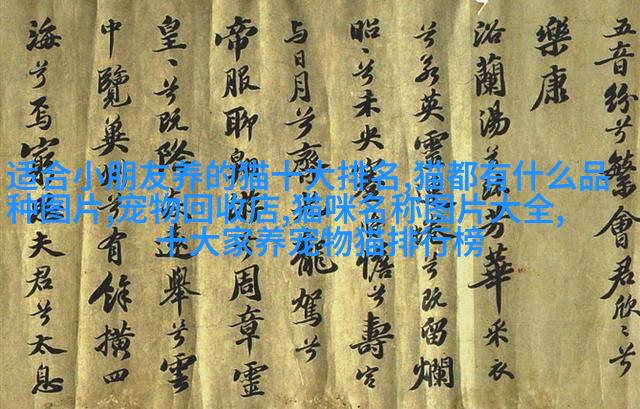 适合小朋友养的猫十大排名,猫都有什么品
种图片,宠物回收店,猫咪名称图片大全,
十大家养宠物猫排行榜
五音紛兮繁會君欣〻兮
樂康
浴蘭湯兮沐芳華采衣
兮若英靈兮既留爛
昭〻兮未央憺兮壽宮
与日月兮齊龍駕兮
帝服聊周章靈
皇〻兮既降舉兮雲
中覽冀有餘橫四
海兮焉窮夫君兮太息